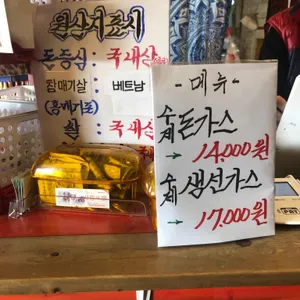 원산지표시
돈등심 : 국내산
참매기살 : 베트남
쌀 : 국내산
-메뉴-
수제 돈가스
→ 14,000원
수제 생선가스
→ 17,000원